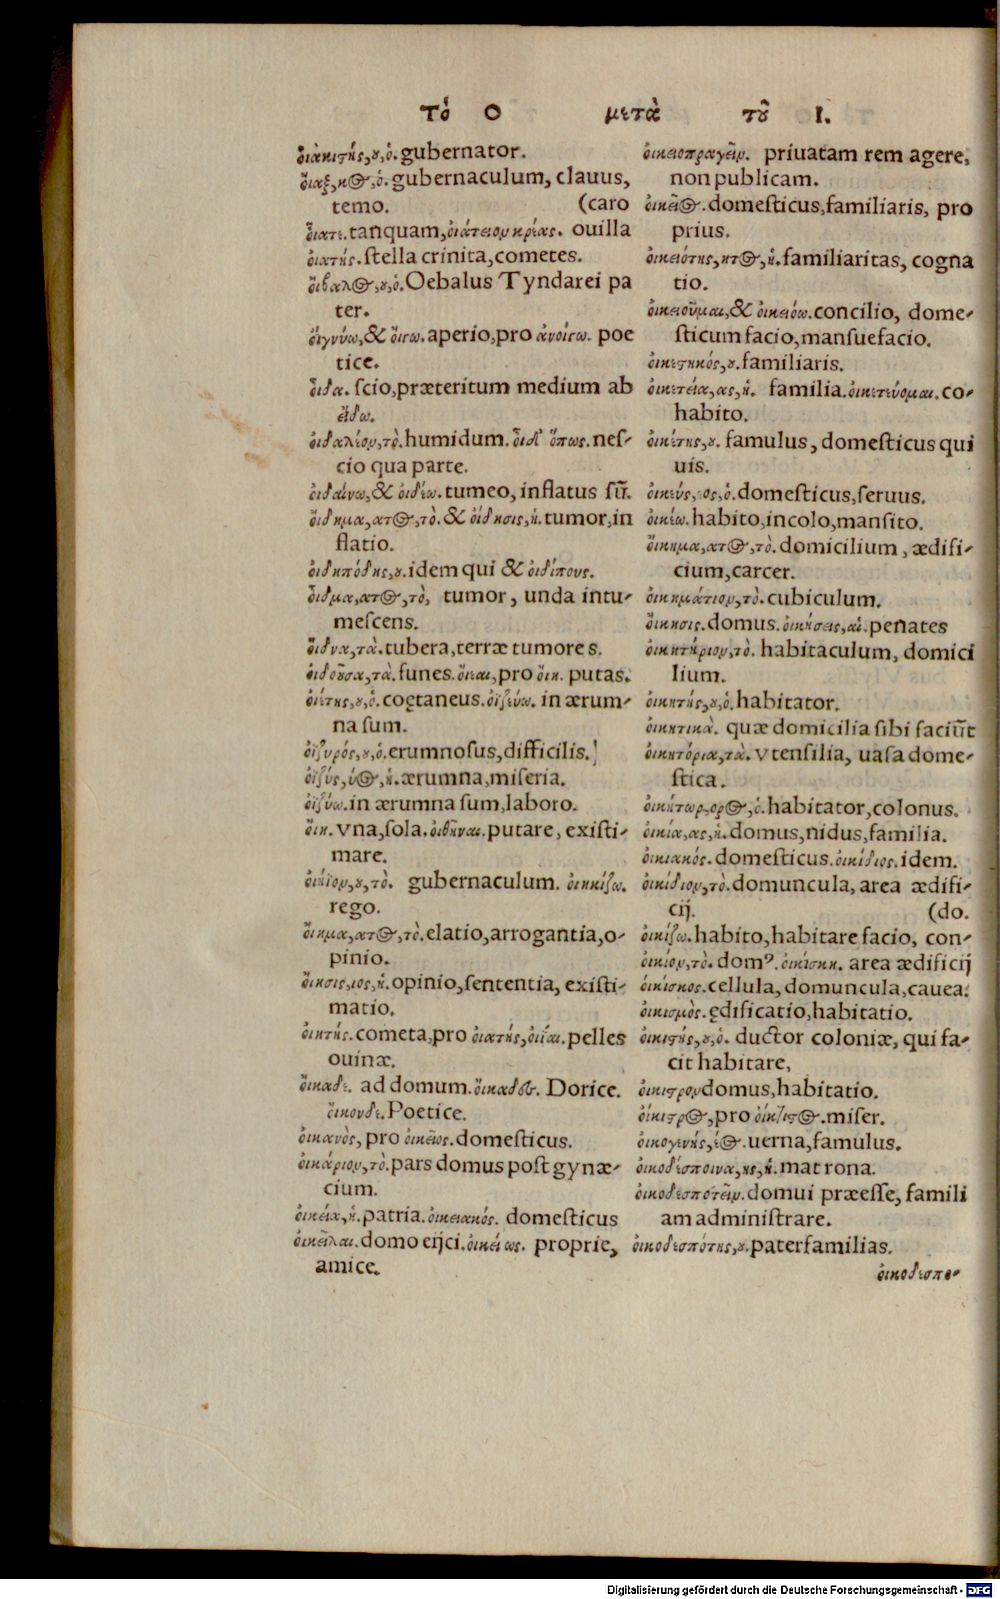 τὸ Ο μετὰ τοῦ Ι.
οἰακιστὴς,ου,ὁ. gubernator.
οἴαξ,κος,ὁ. gubernaculum, clauus,
temo. (caro
οἴατε. tanquam, οἰάτειον κρέας. ouilla
οἰατής. ſtella crinita, cometes.
οἴβαλος,ου,ὁ. Oebalus Tyndarei pa
ter.
οἰγνύω, & οἴγω. aperio, pro ἀνοίγω. poe
tice.
οἶδα. ſcio, præteritum medium ab
εἴδω.
οἰδαλέον,τὸ. humidum. οἶδ' ὅπως. neſ-
cio qua parte.
οἰδαίνω, & οἰδέω. tumeo, inflatus ſū.
οἴδημα,ατος,τὸ. & οἴδησις,ἡ. tumor, in
flatio.
οἰδηπόδης,ου. idem qui & οἰδίπους.
οἶδμα,ατος,τὸ, tumor, unda intu-
meſcens.
οἴδνα,τὰ. tubera, terræ tumores.
οἰδοῦσα,τὰ. funes. οἴεαι, pro οἴη. putas.
οἰέτης,ου,ὁ. coętaneus. οἰζεύω. in ærum-
na ſum.
οἰζυρός,ου,ὁ. erumnoſus, difficilis.
οἰζύς,ύος,ἡ. ærumna, miſeria.
οἰζύω. in ærumna ſum, laboro.
οἴη. vna, ſola. οἰθῆναι. putare, exiſti-
mare.
οἰήϊον,ου,τὸ. gubernaculum. οἰηκίζω.
rego.
οἴημα,ατος,τὸ. elatio, arrogantia, o-
pinio.
οἴησις,ιος,ἡ. opinio, ſententia, exiſti-
matio.
οἰητής. cometa, pro οἰατής, οἰίαι. pelles
ouinæ.
οἴκαδε. ad domum. οἴκαδις. Dorice.
οἴκονδε. Poetice.
οἰκανὸς, pro οἰκεῖος. domeſticus.
οἰκάριον,τὸ. pars domus poſt gynæ-
cium.
οἰκεία,ἡ. patria. οἰκειακός. domeſticus
domo eijci. οἰκείως. proprie,
amice.
οἰκειοπραγεῖν. priuatam rem agere,
non publicam.
οἰκεῖος. domeſticus, familiaris, pro
prius.
οἰκειότης,ητος,ἡ. familiaritas, cogna
tio.
οἰκειοῦμαι, & οἰκειόω. concilio, dome-
ſticum facio, manſuefacio.
οἰκετικός,ου. familiaris.
οἰκετεία,ας,ἡ. familia. οἰκετεύομαι. co-
habito.
οἰκέτης,ου. famulus, domeſticus qui
uis.
οἰκεύς,έος,ὁ. domeſticus, ſeruus.
οἰκέω. habito, incolo, manſito.
οἴκημα,ατος,τὸ. domicilium, ædifi-
cium, carcer.
οἰκημάτιον,τὸ. cubiculum.
οἴκησις. domus. οἰκήσεις,αἱ. penates
οἰκητήριον,τὸ. habitaculum, domici
lium.
οἰκητής,ου,ὁ. habitator.
οἰκητικὰ. quæ domicilia ſibi faciūt
οἰκητόρια,τὰ. vtenſilia, uaſa dome-
ſtica.
οἰκήτωρ,ορος,ὁ. habitator, colonus.
οἰκία,ας,ἡ. domus, nidus, familia.
οἰκιακός. domeſticus. οἰκίδιος. idem.
οἰκίδιον,τὸ. domuncula, area ædifi-
cij. (do.
οἰκίζω. habito, habitare facio, con-
οἰκίον,τὸ. domꝰ. οἰκίσκη. area ædificij
οἰκίσκος. cellula, domuncula, cauea.
οἰκισμὸς. ędificatio, habitatio.
οἰκιστής,ου,ὁ. ductor coloniæ, qui fa-
cit habitare,
οἰκιστρον domus, habitatio.
οἰκιστρος, pro οἴκτιστος. miſer.
οἰκογενής,έος. uerna, famulus.
οἰκοδέσποινα,ης,ἡ. matrona.
οἰκοδεσποτεῖν. domui præeſſe, famili
am adminiſtrare.
οἰκοδεσπότης,ου. paterfamilias.
οἰκοδεσπο-
Digitalisierung gefördert durch die Deutsche Forschungsgemeinschaft - DFG